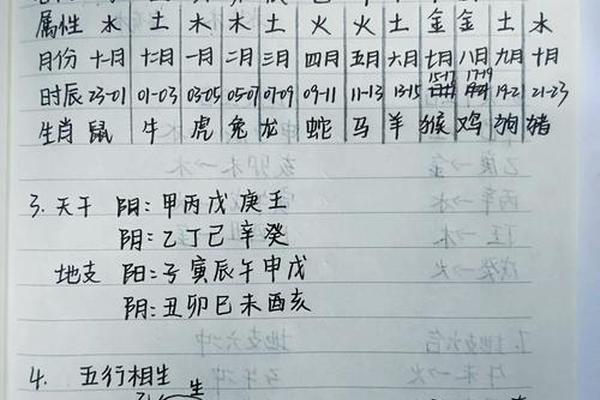 属性 水 土 木 木 土 火 火 土 金 金 土 水
月份 十一月 十二月 一月 二月 三月 四月 五月 六月 七月 八月 九月 十月
时辰 23-01 01-03 03-05 05-07 07-09 09-11 11-13 13-15 15-17 17-19 19-21 21-23
生肖 鼠 牛 虎 兔 龙 蛇 马 羊 猴 鸡 狗 猪
3. 天干 阴: 甲丙戊庚壬
阴: 乙丁己辛癸
地支 阳: 子寅辰午申戌
阴: 丑卯巳未酉亥
4. 五行相生
生